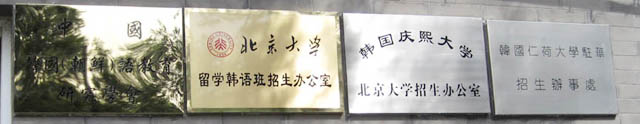 中國
韓國(朝鮮)語教育
研究學會
北京大学
留学韩语班招生办公室
韩国庆熙大学
北京大学招生办公室
韓國仁荷大學駐華
招生辦事處